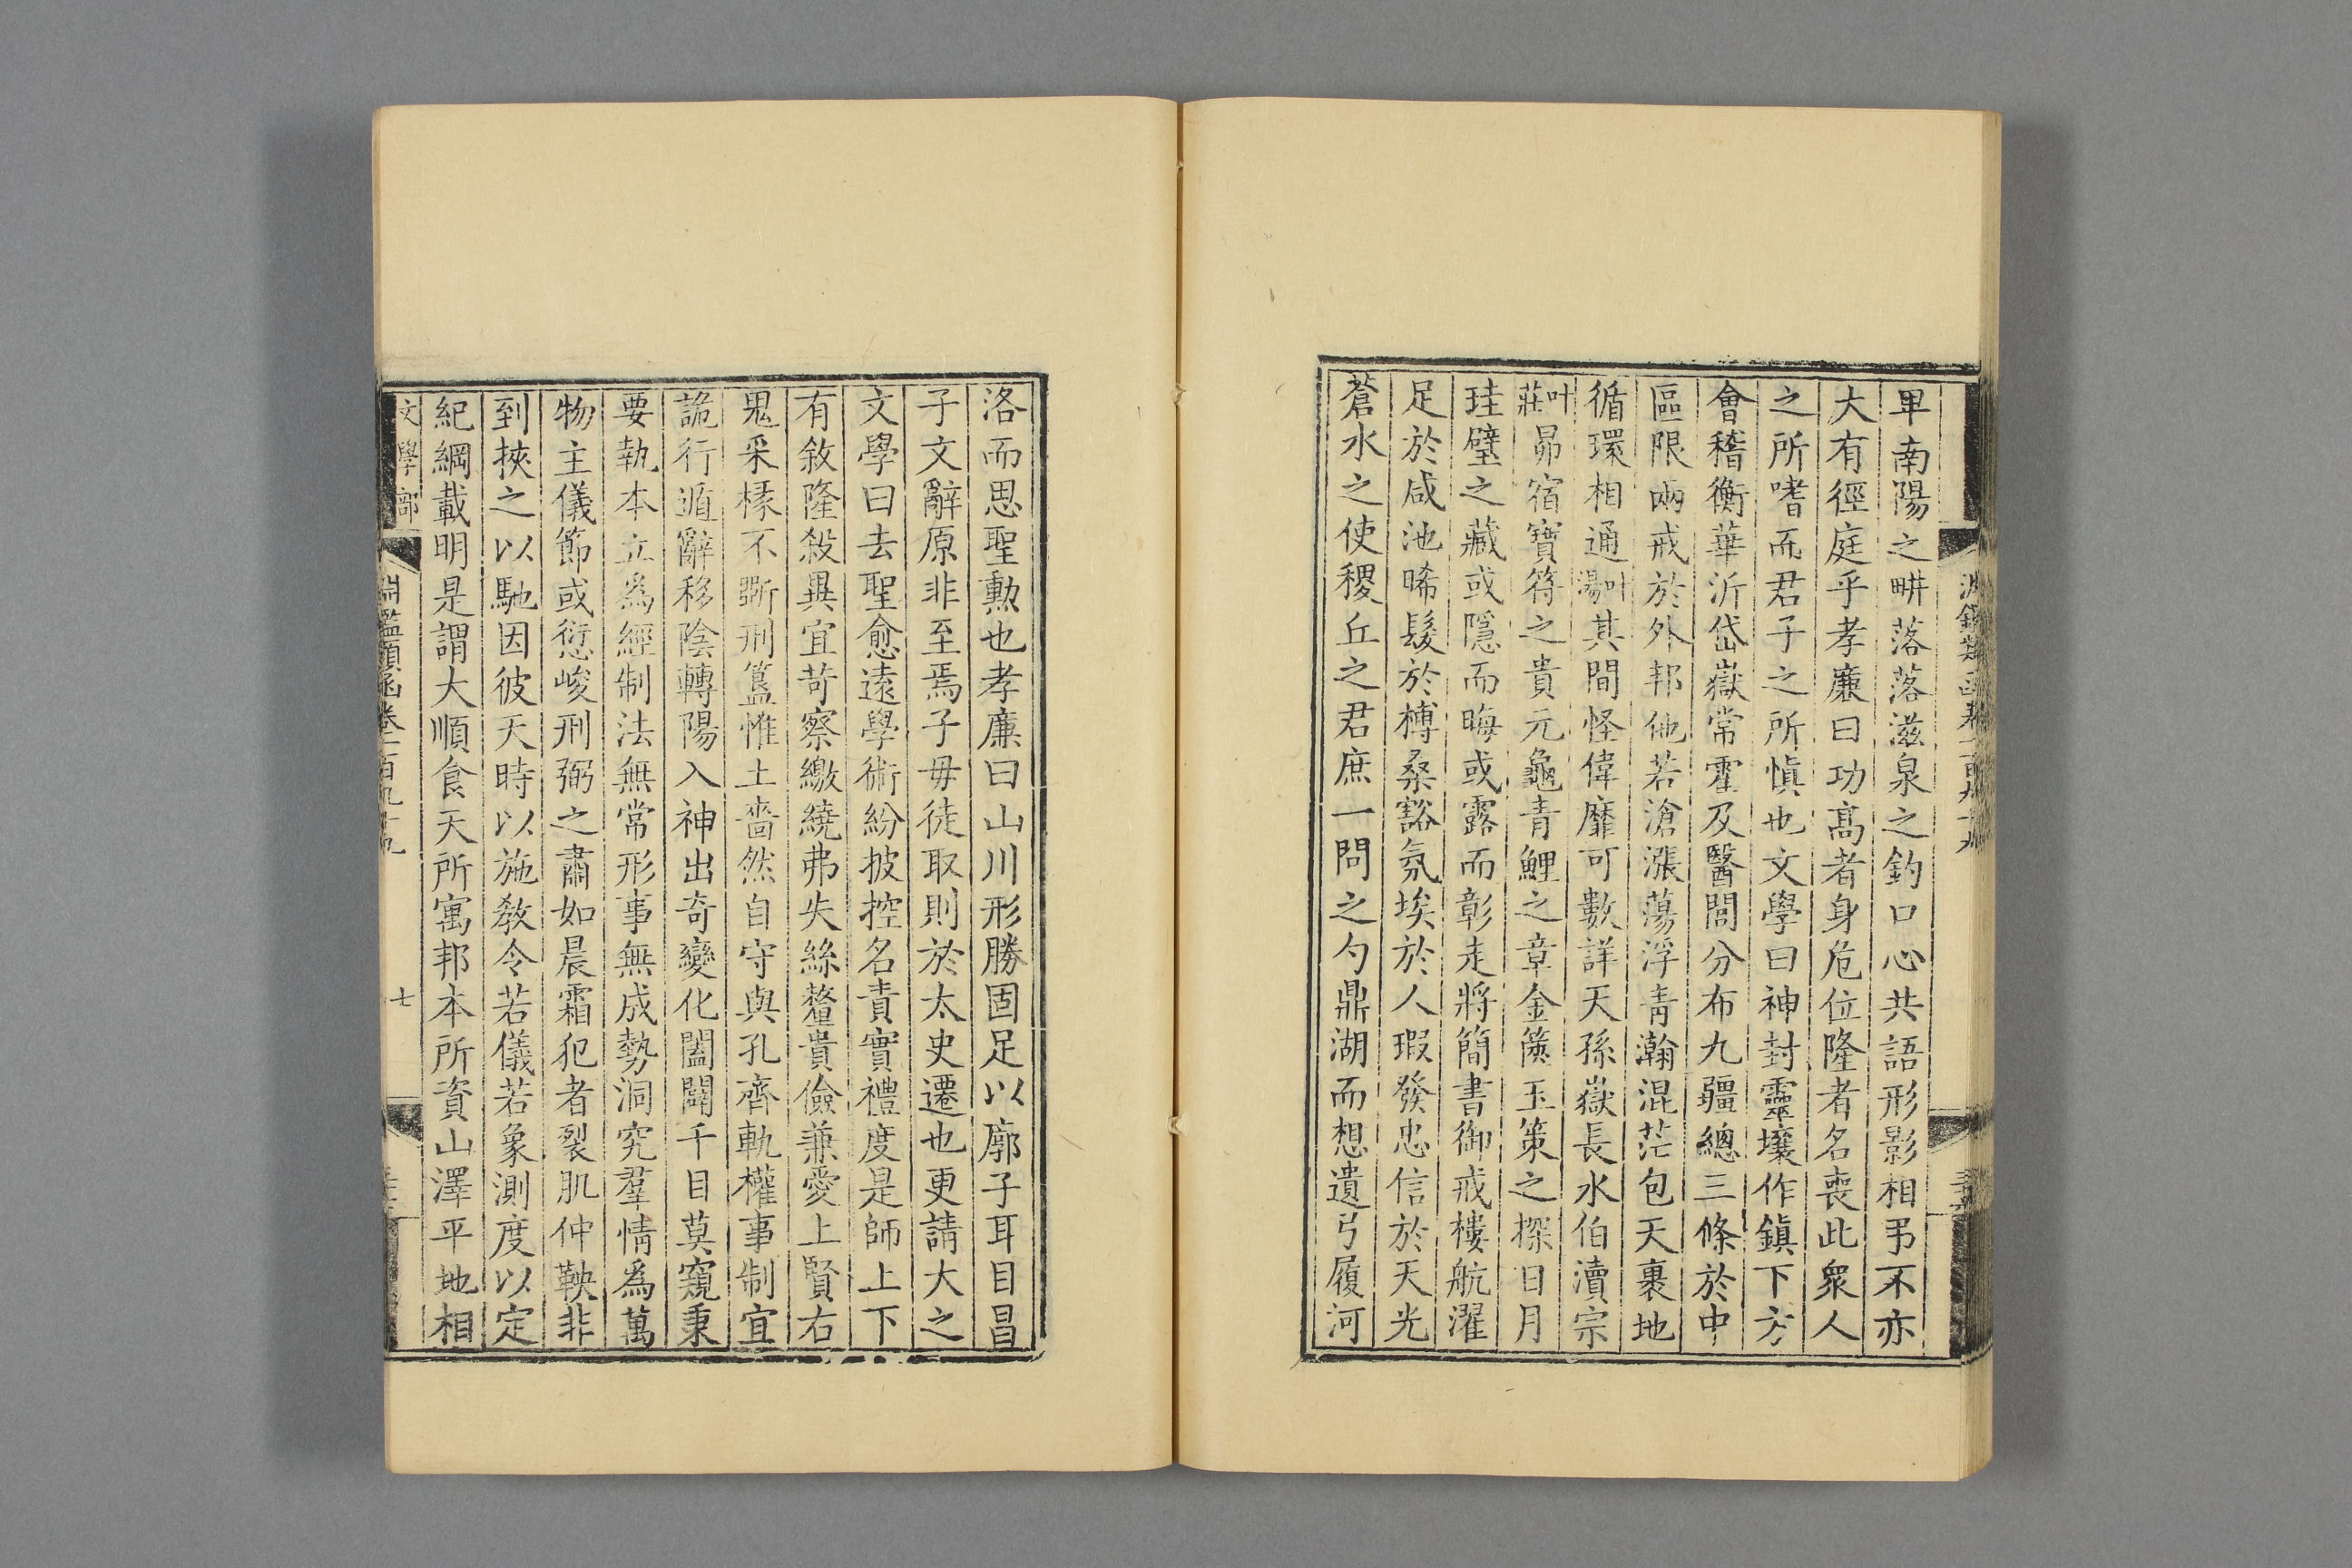 畢南陽之畊落落滋泉之釣口心共語形影相弔不亦
大有徑庭乎孝廉曰功高者身危位隆者名喪此衆人
之所嗜而君子之所慎也文學曰神封靈壤作鎮下方
會稽衡華沂岱嶽常霍及醫閭分布九疆總三條於中
區限兩戒於外邦他若滄漲蕩浮青瀚混茫包天裹地
循環相通叶湯其間怪偉靡可數詳天孫嶽長水伯瀆宗
叶莊昴宿寶符之貴元龜青鯉之章金篋玉策之探日月
珪璧之藏或隱而晦或露而彰走將簡書御戒樓航濯
足於咸池晞髮於榑桑豁氛埃於人瑕發忠信於天光
蒼水之使稷丘之君庶一問之勺鼎湖而想遺弓履河
洛而思聖勲也孝廉曰山川形勝固足以廓子耳目昌
子文辭原非至焉子毋徒取則於太史遷也更請大之
文學曰去聖愈遠學術紛披控名責實禮度是師上下
有敘隆殺異宜苛察繳繞弗失絲釐貴儉兼愛上賢右
鬼采椽不斲刑簋惟土嗇然自守與孔齊軌權事制宜
詭行遁辭移陰轉陽入神出奇變化闔闢千目莫窺秉
要執本立爲經制法無常形事無成勢洞究羣情爲萬
物主儀節或愆峻刑弼之肅如晨霜犯者裂肌仲鞅非
到挾之以馳因彼天時以施敎令若儀若象測度以定
紀綱載明是謂大順食天所寓邦本所資山澤平地相
文學部 淵鑑類函卷一百九十九 七